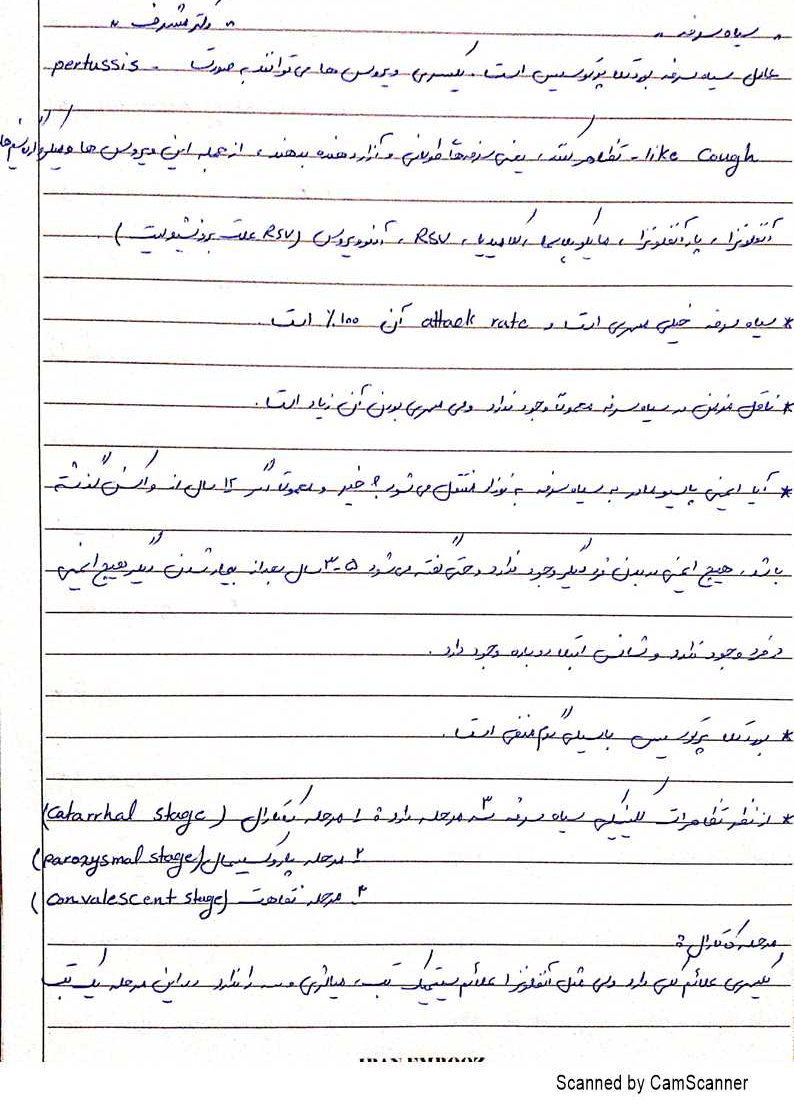 " سیاه سرفه " " دکتر مشرف "
عامل سیاه سرفه بوردتلا پرتوسیس است. یکسری ویروس ها می توانند به صورت pertussis -
like cough - تظاهر کنند، یعنی سرفه‌ها طولانی و آزار دهنده بدهند، از جمله این ویروس ها و میکروارگانیسم‌ها
آنفلونزا، پارآنفلونزا، مایکوپلاسما، کلامیدیا، RSV، آدنوویروس (RSV علت برونشیولیت)
* سیاه سرفه خیلی مسری است و attack rate آن ۱۰۰٪ است.
* ناقل مزمن در سیاه سرفه معمولا وجود ندارد ولی مسری بودن آن زیاد است.
* آیا ایمنی پاسیو مادر به سیاه سرفه به نوزاد منتقل می شود؟ خیر و معمولا اگر ۱۲ سال از واکسن گذشته
باشد، هیچ ایمنی در بدن فرد دیگر وجود ندارد و حتی گفته می شود ۵-۳ سال بعد از بیمار شدن دیگر هیچ ایمنی
در فرد وجود ندارد و شانس ابتلا دوباره وجود دارد.
* بوردتلا پرتوسیس باسیل گرم منفی است.
* از نظر تظاهرات کلینیکی سیاه سرفه ۳ مرحله دارد: ۱. مرحله کاتارال (Catarrhal stage)
۲. مرحله پاروکسیسمال (paroxysmal stage)
۳. مرحله نقاهت (convalescent stage)
مرحله کاتارال:
یکسری علائم کلی دارد ولی مثل آنفلونزا علائم سیستمیک تب، میالژی و ... را ندارد در این مرحله یک تب
Scanned by CamScanner